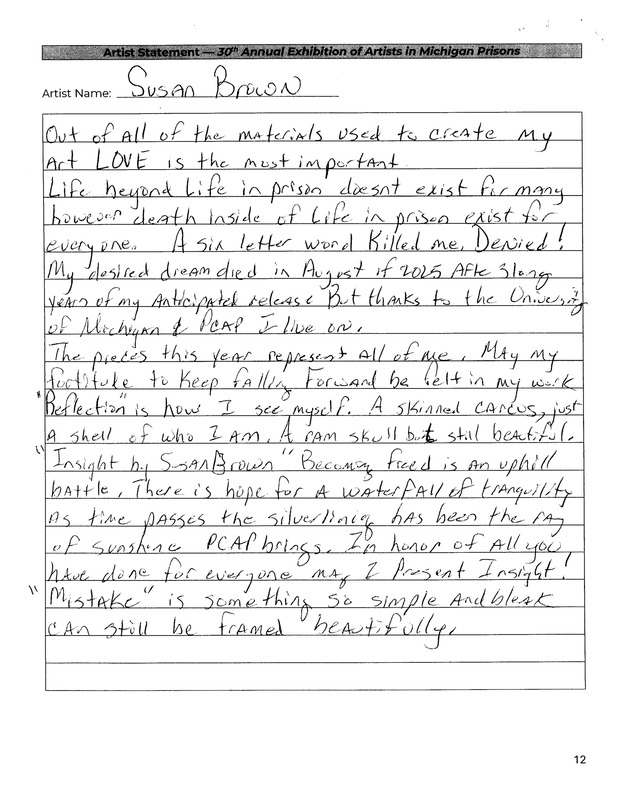 Artist Statement — 30th Annual Exhibition of Artists in Michigan Prisons
Artist Name: Susan Brown
Out of All of the materials used to create my
Art LOVE is the most important
Life beyond Life in prison doesnt exist for many
however death inside of Life in prison exist for
everyone. A six letter word Killed me, Denied!
My desired dream died in August if 2025 Afte 3 long
years of my Anticipated release But thanks to the University
of Michigan & PCAP I live on.
The pieces this year represent All of me. MAy my
fortitute to Keep falling Forward be felt in my work
"Reflection" is how I see myself. A skinned carcus, just
A shell of who I AM. A ram skull but still beautiful.
"Insight by Susan Brown" Becoming freed is an uphill
battle. There is hope for A waterfall of tranquility
As time passes the silverlining has been the ray
of sunshine PCAP brings. In honor of All you
have done for everyone may I Present Insight!
"Mistake" is something so simple And bleak
can still be framed beautifully.
12